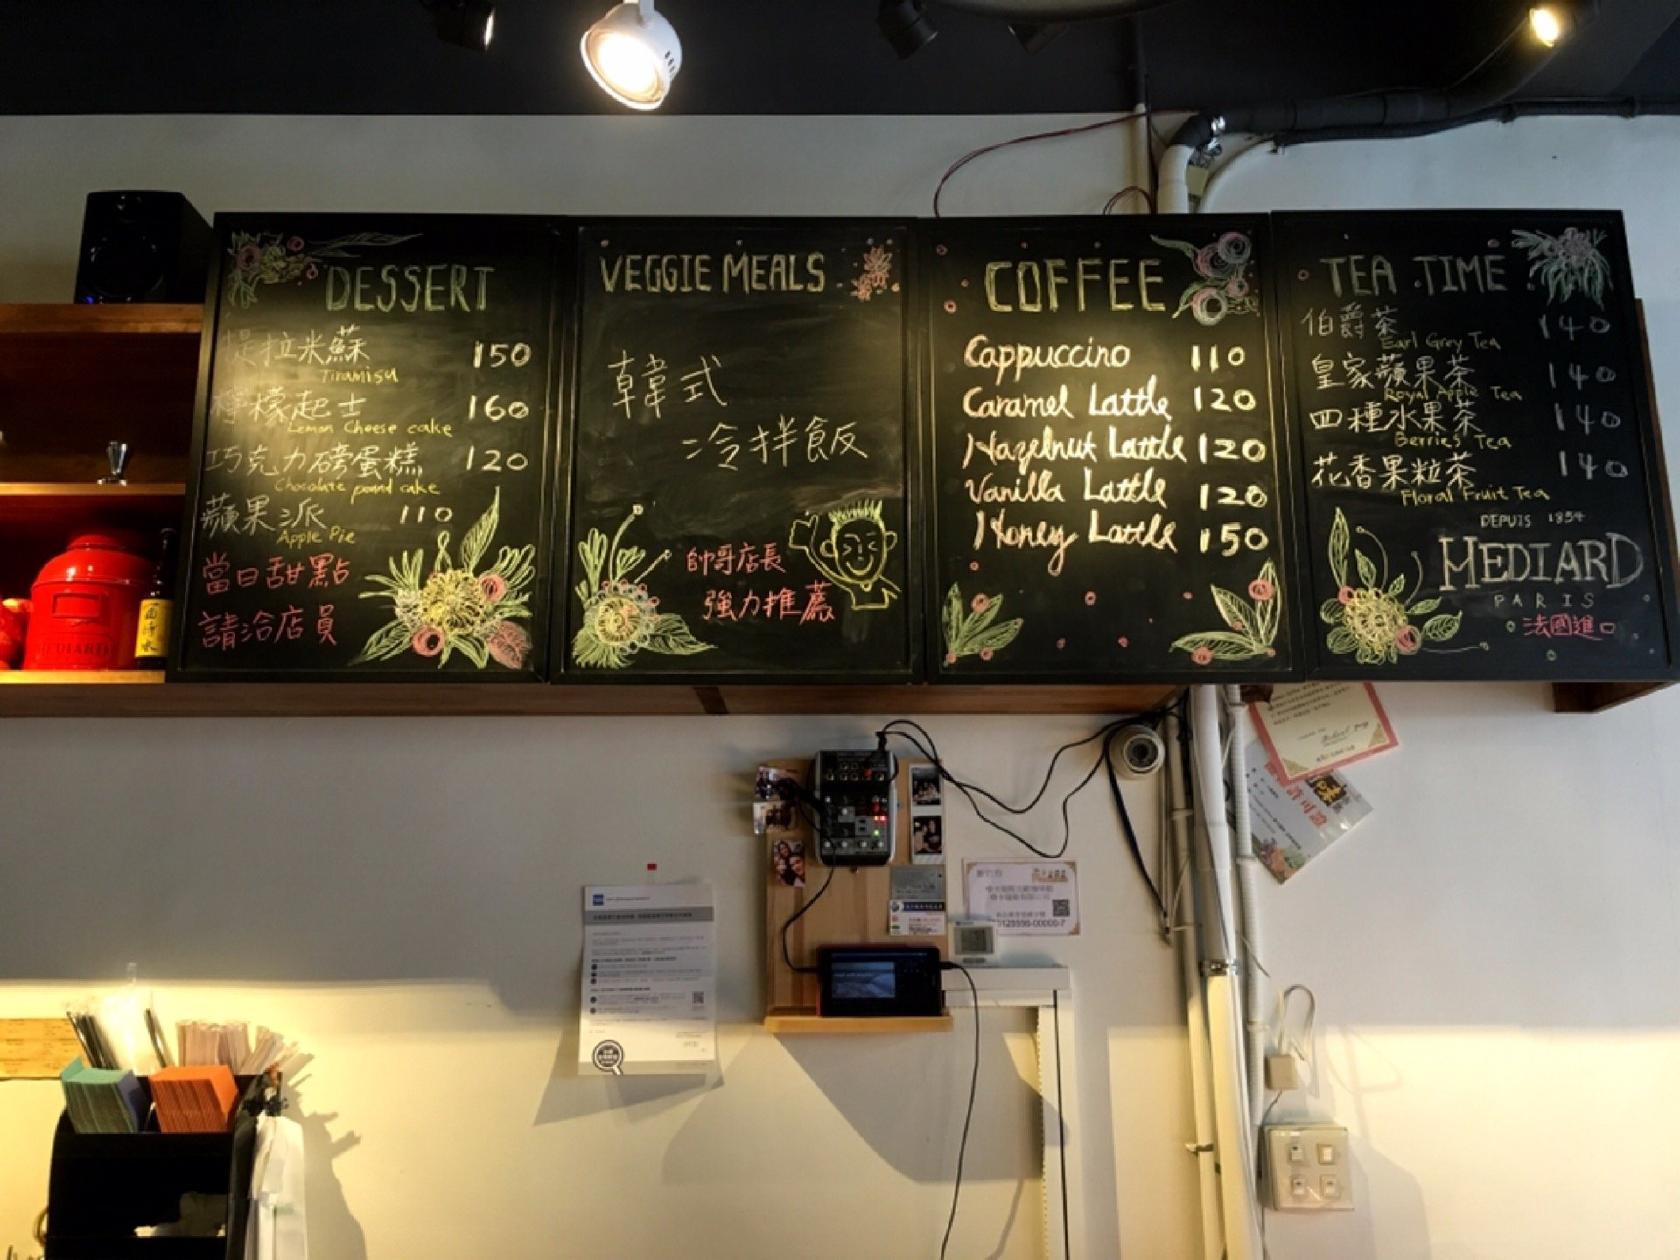 DESSERT
提拉米蘇 150
Tiramisu
檸檬起士 160
Lemon Cheese cake
巧克力磅蛋糕 120
Chocolate pound cake
蘋果派 110
Apple Pie
當日甜點
請洽店員
VEGGIE MEALS
韓式
冷拌飯
帥哥店長
強力推薦
COFFEE
Cappuccino 110
Caramel Lattle 120
Hazelnut Lattle 120
Vanilla Lattle 120
Honey Lattle 150
TEA TIME
伯爵茶 140
Earl Grey Tea
皇家蘋果茶 140
Royal Apple Tea
四種水果茶 140
Berries Tea
花香果粒茶 140
Floral Fruit Tea
DEPUIS 1854
HEDIARD
PARIS
法國進口